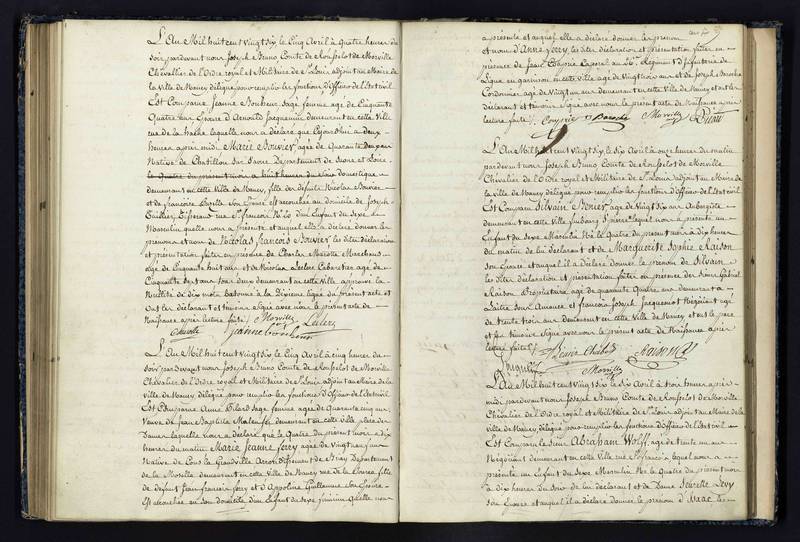 L'An Mil huit cent vingt six le Cinq Avril à Quatre heures du
soir pardevant nous Joseph Bruno Comte de Rousselot de Morville
Chevalier de l'Ordre royal et Militaire de St Louis adjoint au Maire de
la Ville de Nancy délégué pour remplir les fonctions d'Officier de l'Etat civil
Est Comparue Jeanne Bonheur Sage femme agée de Cinquante
Quatre ans Epouse d'Arnould Jacquemin demeurant en cette Ville
rue de la hache laquelle nous a déclaré que Cejourd'hui a deux
heures après midi Marie Bouvier agée de Quarante deux ans
Native de Chatillon Sur Departement de Saone et Loire
le Quatre du présent mois à huit heures du soir domestique
demeurant en cette Ville de Nancy, fille des defunts Nicolas Bouvier
et de françoise Son Epouse est accouchée au domicile de Joseph
rue St françois No 20 d'un Enfant du Sexe
Masculin quelle nous a présenté et auquel elle a déclaré donner les
prenoms et nom de Nicolas francois Bouvier les dites déclaration
et présentation faites en présence de Charles Marotte Marchand
agé de Cinquante huit ans et de Nicolas Leclerc Cabaretier agé de
Cinquante Sept ans tous deux demeurant en cette Ville approuvé la
Nullité de dix mots batonnés à la Dixieme ligne du présent acte et
ont les déclarant et témoins signé avec nous le présent acte de
Naissance après lecture faite
Morville Leclerc
Jeanne Bonheur
L'An Mil huit cent vingt six le Cinq Avril à cinq heures du
soir pardevant nous Joseph Bruno Comte de Rousselot de Morville
Chevalier de l'Ordre royal et Militaire de St Louis adjoint au Maire de la
Ville de Nancy, délégué pour remplir les fonctions d'Officier de l'Etat civil
Est Comparue Anne Sage femme agée de Quarante cinq ans
Veuve de Jean Baptiste demeurant en cette Ville place de
laquelle nous a déclaré que le Quatre du présent mois à dix
heures du matin Marie Jeanne Jorry agée de Vingt ans
Native de Arrondissement de Briey Departement
de la Moselle demeurant en cette Ville de Nancy rue de la fille
de defunt Jean francois Jorry et d'Appoline Guillaume Son Epouse
Est accouchée en son domicile d'un Enfant du Sexe feminin quelle nous
a présenté et auquel elle a déclaré donner les prenom
et nom d'Anne Jorry, les dites déclaration et présentation faites en
presence de Jean Caporal au Regiment d'Infanterie de
Ligne en garnison en cette Ville agé de Vingt trois ans et de Joseph Baroche
Cordonnier agé de Vingt un ans demeurant en cette Ville de Nancy et ont les
déclarant et témoins signé avec nous le présent acte de Naissance après
lecture faite
Baroche Morville
L'An Mil huit cent vingt six le Six Avril à onze heures du matin
pardevant nous Joseph Bruno Comte de Rousselot de Morville
Chevalier de l'Ordre royal et Militaire de St Louis adjoint au Maire de
la Ville de Nancy, délégué pour remplir les fonctions d'Officier de l'Etat civil
Est Comparu Silvain agé de Vingt six ans Aubergiste
demeurant en cette Ville faubourg St pierre lequel nous a présenté un
Enfant du Sexe Masculin Né le Quatre du present mois à dix heures
du matin de lui déclarant et de Marguerite Sophie Raison
Son Epouse et auquel il a déclaré donner le prenom de Silvain
les dites déclaration et présentation faites en présence des Sieurs Gabriel
Raison Propriétaire agé de quarante Quatre ans demeurant à
et francois Joseph Jacquemot Négociant agé
de trente trois ans demeurant en cette Ville de Nancy et ont le pere
et les témoins signé avec nous le présent acte de Naissance après
lecture faite
Raison
Morville
L'An Mil huit cent vingt six le Six Avril à trois heures après
midi pardevant nous Joseph Bruno Comte de Rousselot de Morville
Chevalier de l'Ordre royal et Militaire de St Louis adjoint au Maire de la
Ville de Nancy délégué pour remplir les fonctions d'Officier de l'Etat civil
Est Comparu le Sieur Abraham Wolff agé de trente un ans
Négociant demeurant en cette Ville rue lequel nous a
présenté un Enfant du Sexe Masculin Né le Quatre du présent mois
à dix heures du soir de lui déclarant et de Dame Levy
Son Epouse et auquel il a déclaré donner le prenom d'Isaac les